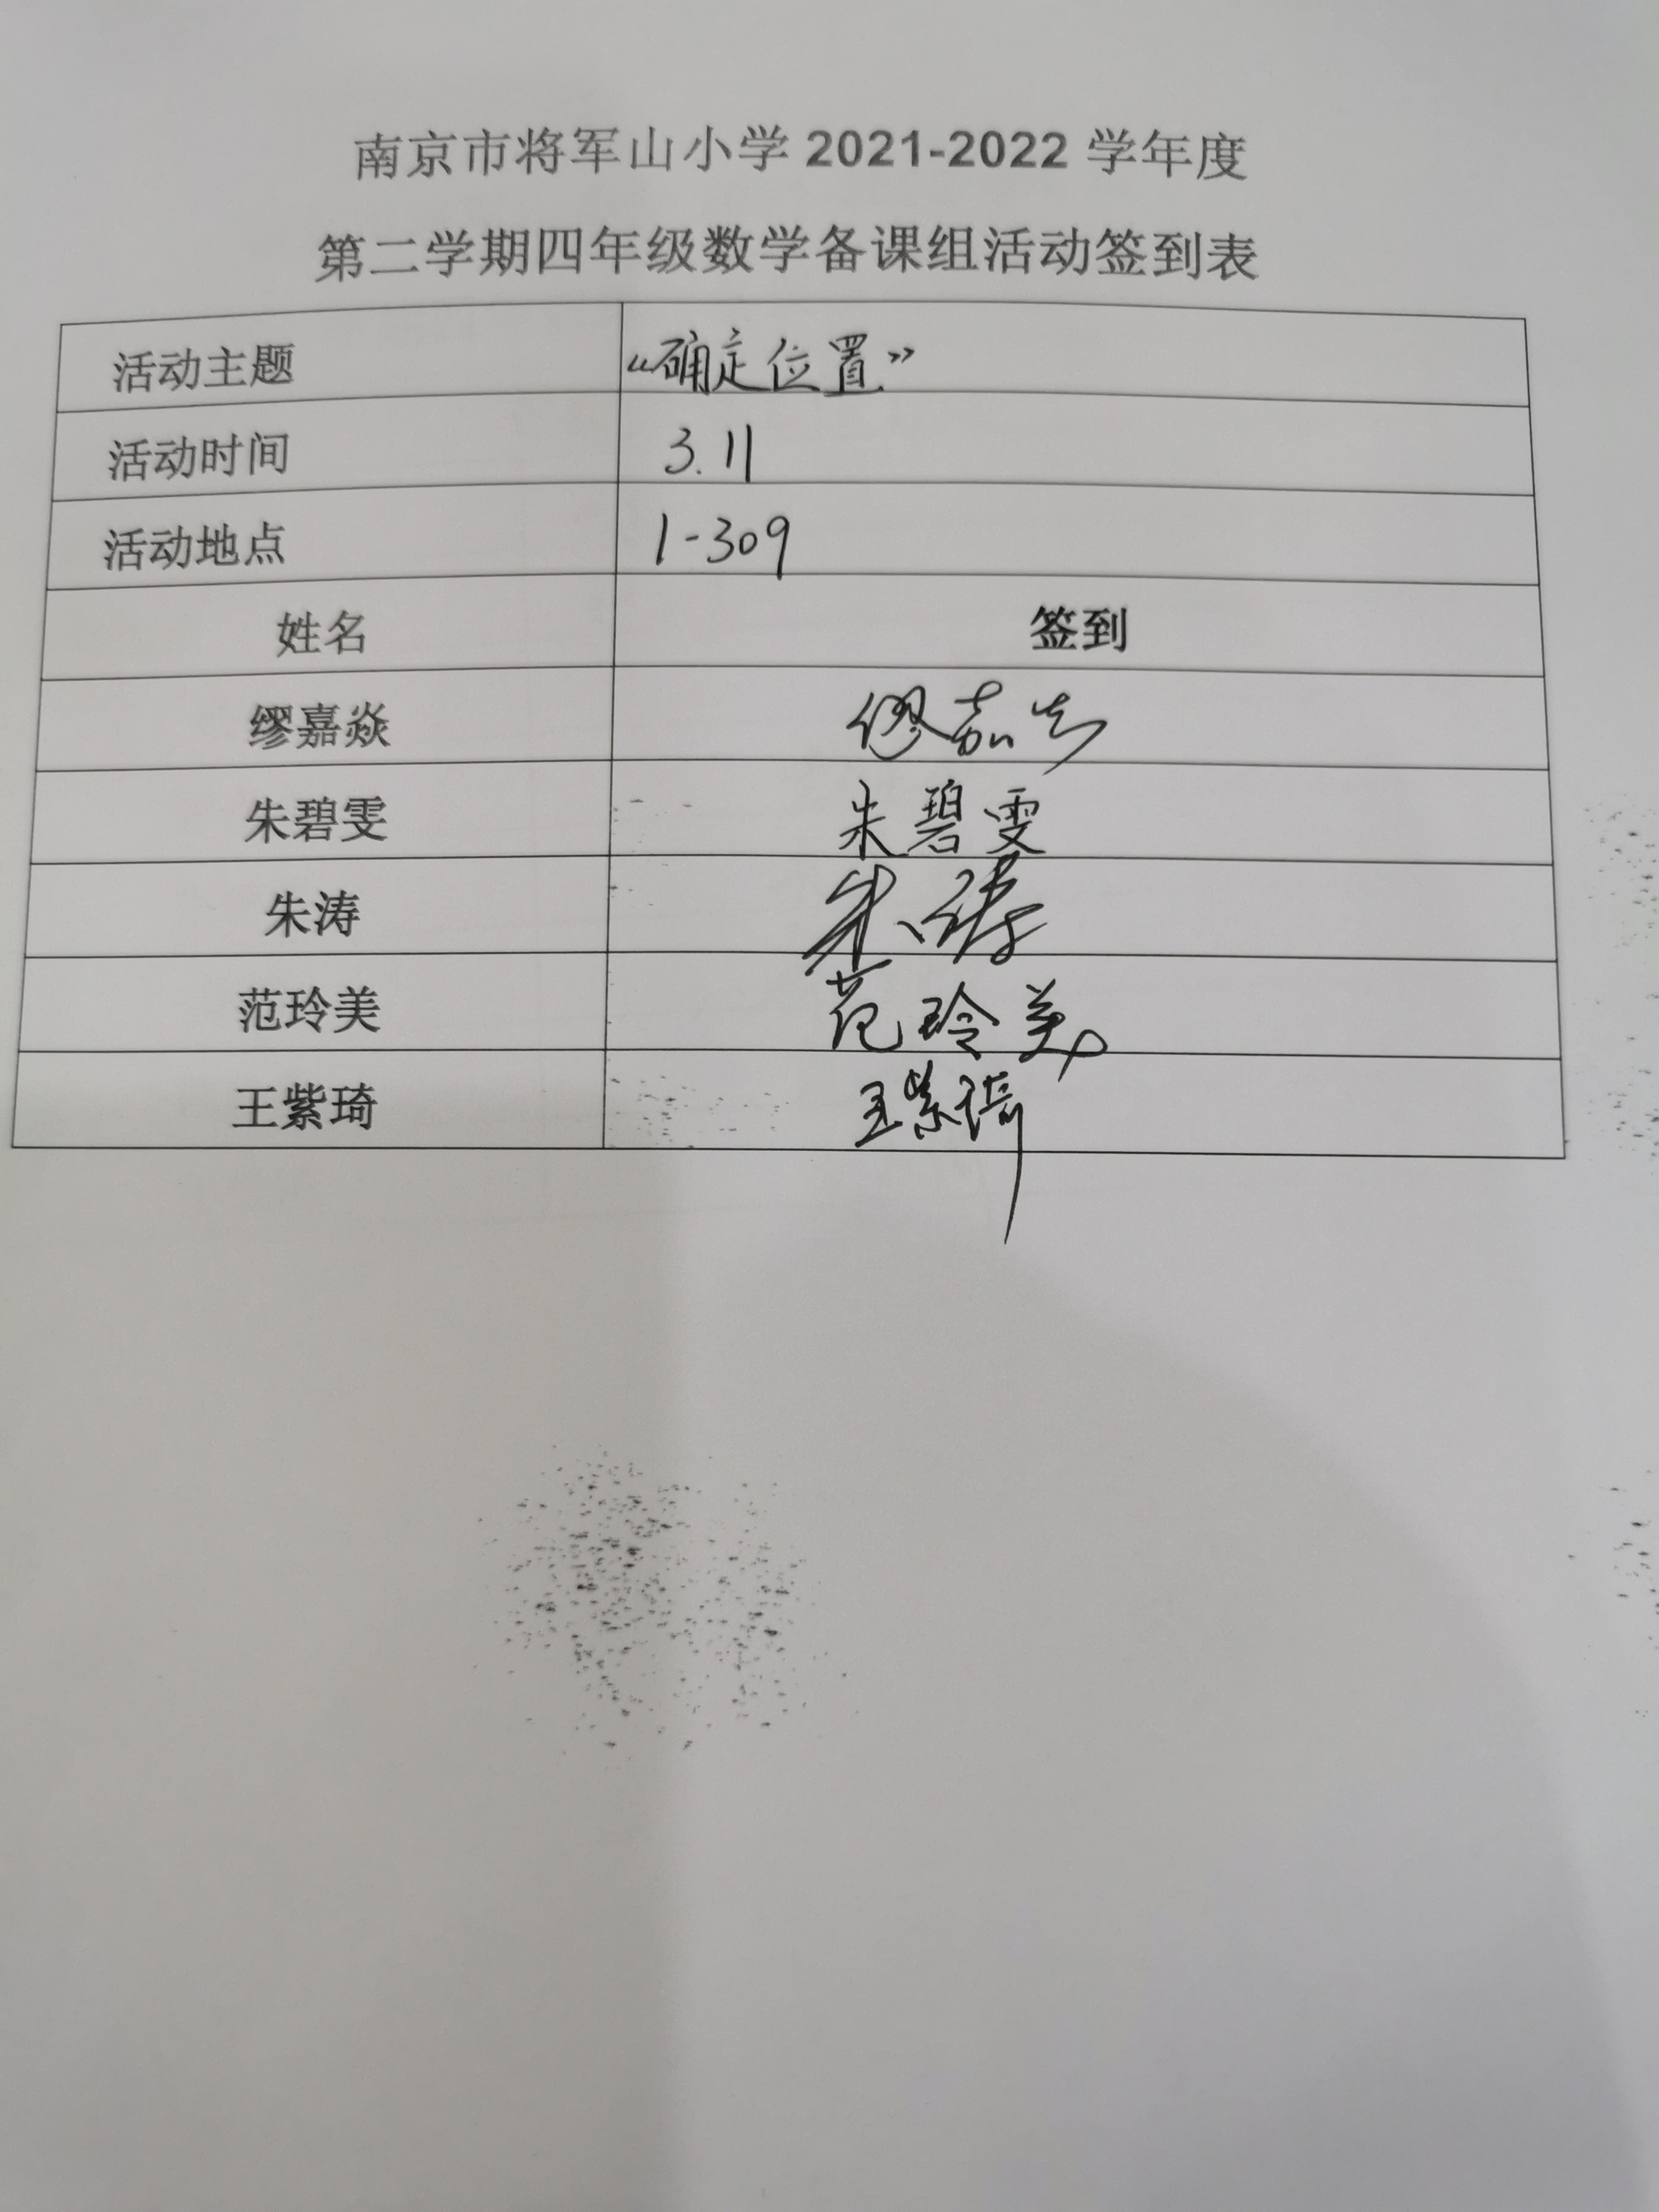 南京市将军山小学 2021-2022 学年度
第二学期四年级数学备课组活动签到表
活动主题 “确定位置”
活动时间 3.11
活动地点 1-309
姓名 签到
缪嘉焱 缪嘉焱
朱碧雯 朱碧雯
朱涛 朱涛
范玲美 范玲美
王紫琦 王紫琦